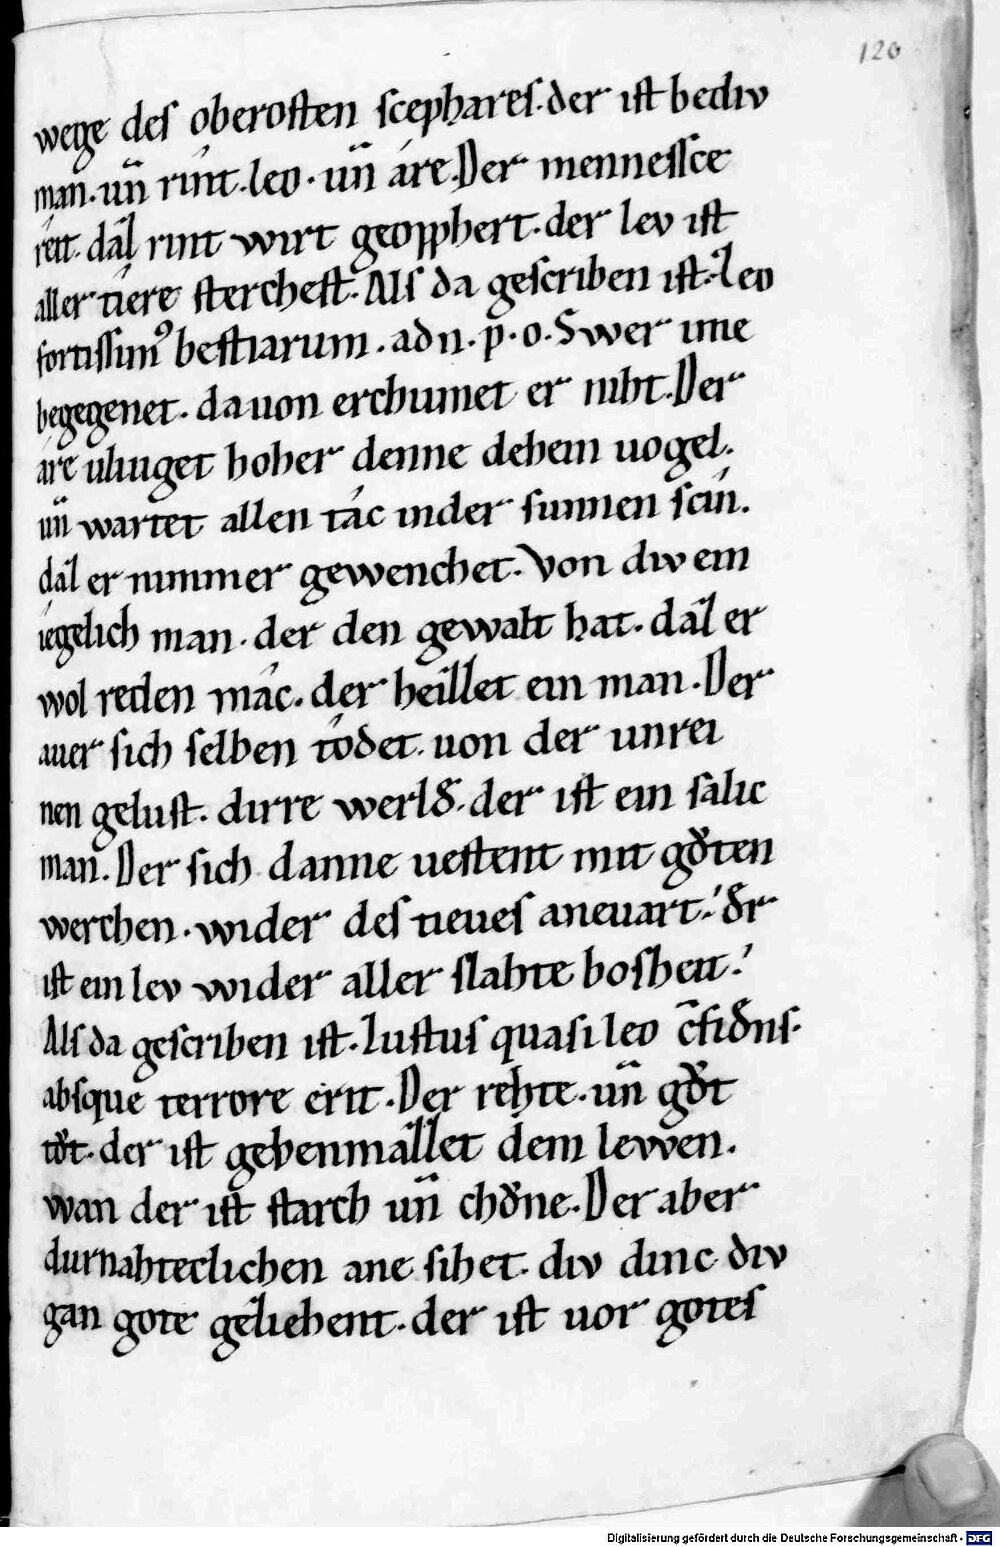 120
wege des oberosten scephares. der ist bediv
man. uñ rínt. leo. uñ áre. Der mennessce
reit. dáz rint wirt geopphert. der lev ist
aller tíere stercheſt. Als da gescriben ist. Leo
fortissim⁹ bestiarum. adn. p. o. Swer ime
begegenet. dauon erchumet er niht. Der
áre uliuget hoher denne dehein uogel.
uñ wartet allen tác inder sunnen scín.
dáz er nimmer gewenchet. Von div ein
iegelich man. der den gewalt hat. dáz er
wol reden mác. der heizzet ein man. Der
auer sich selben tódet. uon der unrei
nen gelust. dirre werlð. der ist ein salic
man. Der sich danne uestent mit gůten
werchen. wider des tieues aneuart. ðr
ist ein lev wider aller slahte bosheit.
Als da gescriben ist. Iustus quasi leo c̄fiðns.
absque terrore erit. Der rehte. uñ gůt
tůt. der ist gebenmâzzet dem lewen.
wan der ist starch uñ chůne. Der aber
durnahteclichen ane sihet. div dinc div
gan gote gelichent. der ist uor gotes
Digitalisierung gefördert durch die Deutsche Forschungsgemeinschaft - DFG